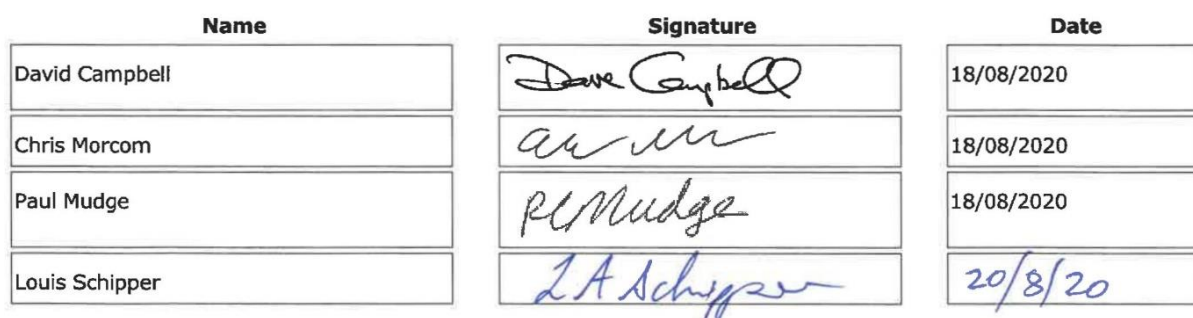 Name Signature Date
David Campbell Dave Campbell 18/08/2020
Chris Morcom 18/08/2020
Paul Mudge PLMudge 18/08/2020
Louis Schipper L A Schipper 20/8/20